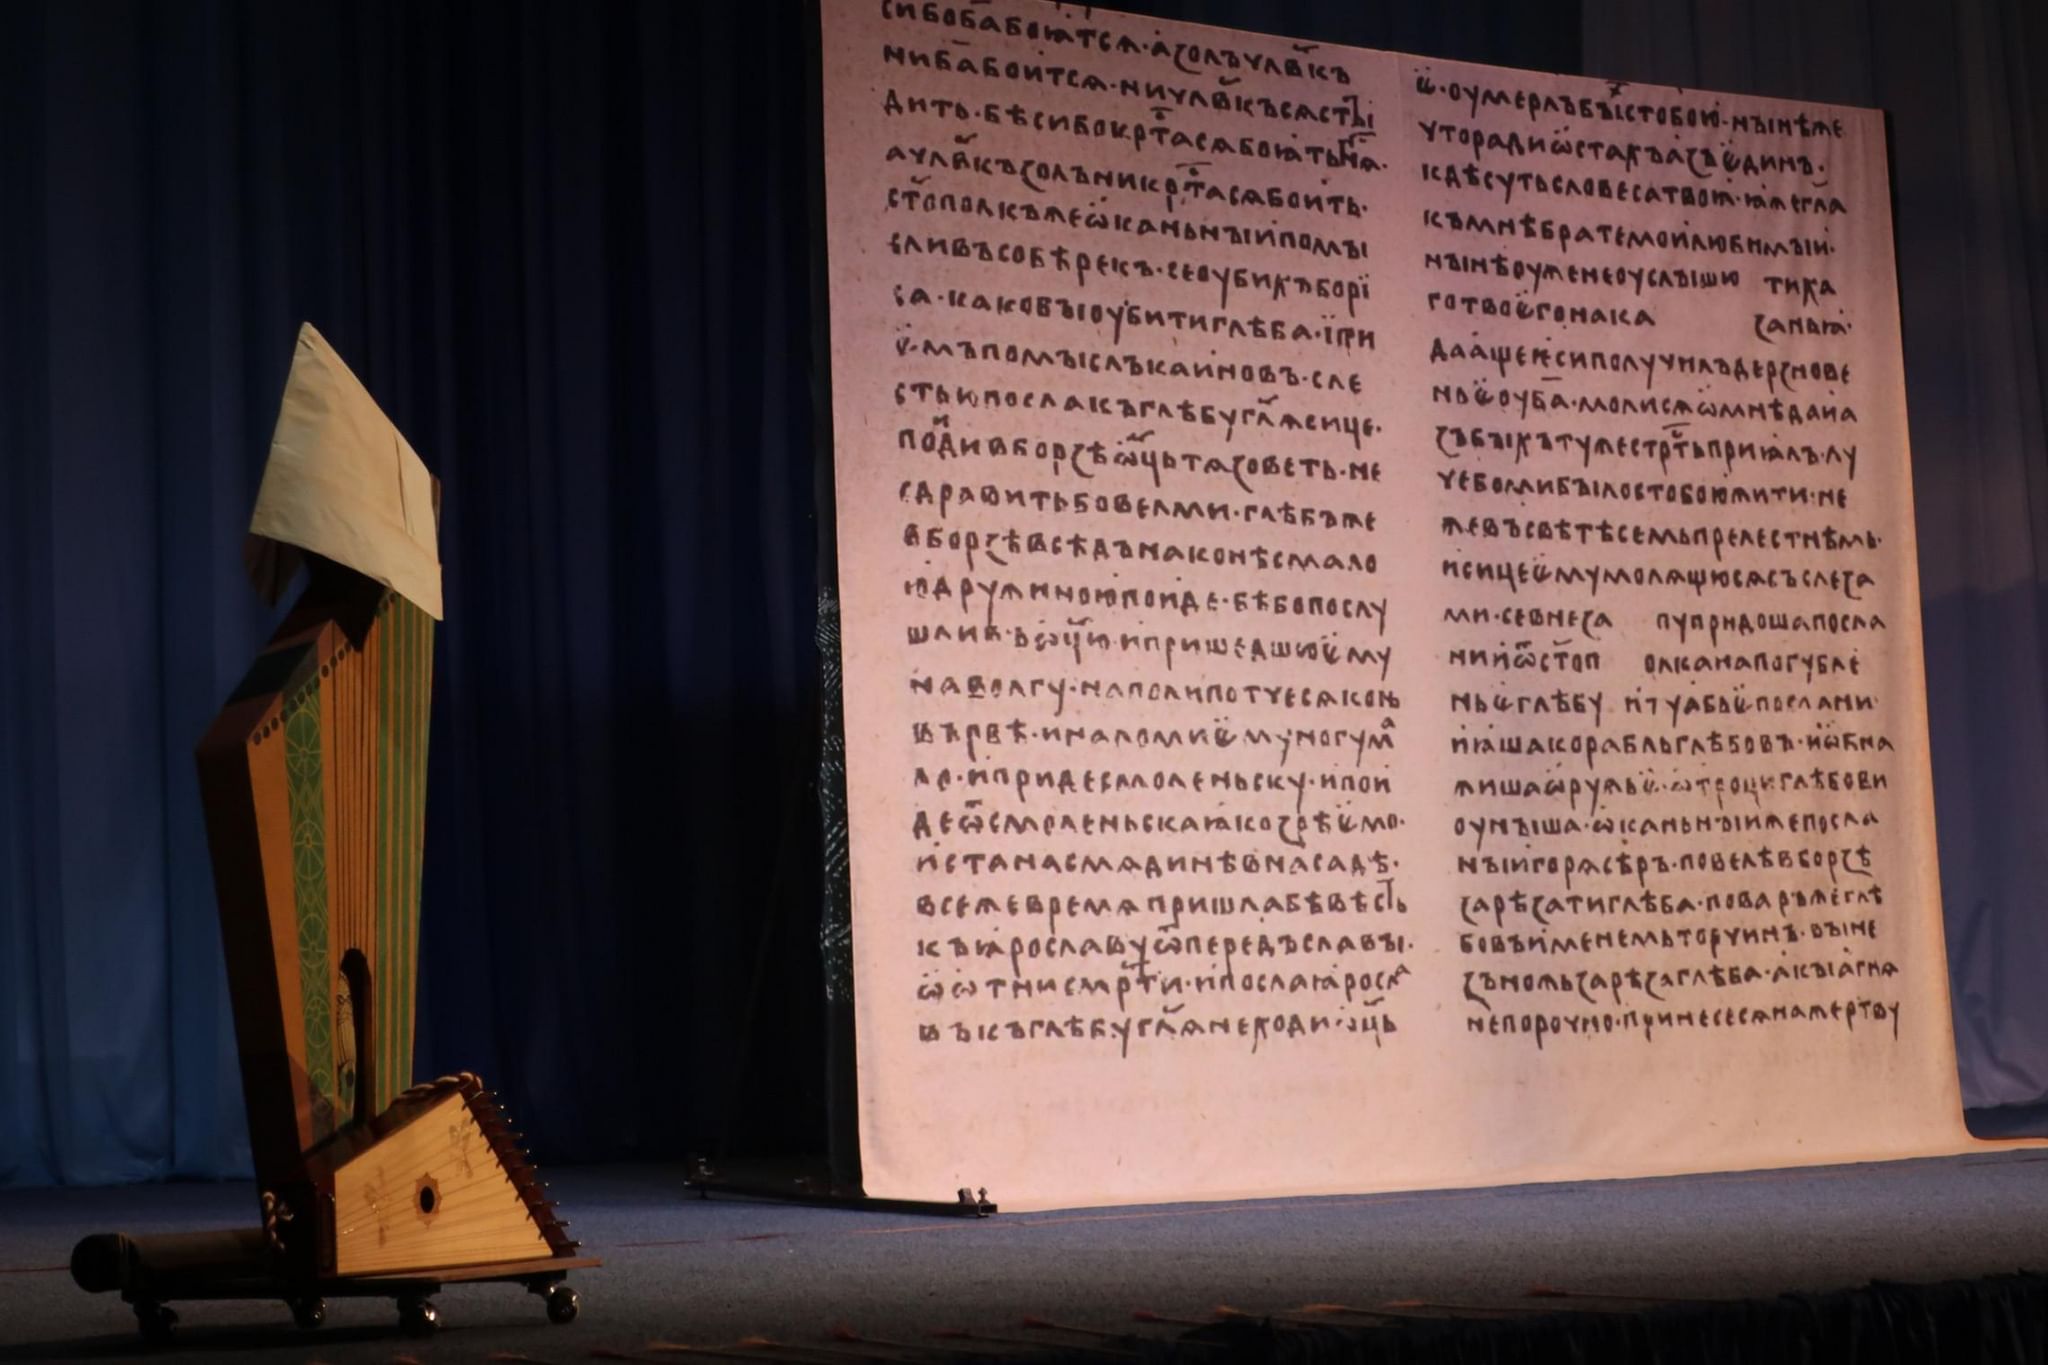 сибоба̄боѩ́тсѧ·а́ꙁолъчл҃вкъ
ниба̄боитсѧ·ничл҃вкъсѧсты
дить·бѣсибокрⷭ҇тасѧбоꙗ́тьгⷭ҇нѧ·
ачл҃вкъꙁолъникрⷭ҇тасѧбоить·
ст҃ополкъжеѡ̈каньныи́помы
сливъсобѣрекъ·сеоубихъборї
са·каковыоубитиглѣба·їпри
ё·мъпомыслъкаи́новъ·сле
стьюпослакъглѣбугл҃ѧсице·
пои́дивборꙁѣѿц҃ьтѧꙁоветь·не
сдравитьбовелми·глѣбъже
вборꙁѣвсѣдънаконѣсмало
ю́дружиноюпоиде·бѣбопослу
шлив·ъѿц҃ю·ипришедшюёму
наволгу·наполипотчесѧконь
вървѣ·иналомиёмуногумⷶ
ло·ипридесмоленьску·ипои
деѿсмоленьскаꙗ́коꙁрѣёмо·
и́станасмѧдинѣвнасадѣ·
всежевремѧпришлабѣвѣсть
къꙗ́рославуѿпередъславы·
ѡ̈ѿтнисмрⷭ҇ти·и́послаꙗ́рослⷶ
въкъглѣбугл҃ѧнеходи·ѿц҃ь
ё·оумерлъбы̇хстобою·нынѣже
чторадиѡ̈стахъа́ꙁъёдинъ·
кдѣсутьсловесатвоꙗ́·ꙗ́жегл҃а
къмнѣбратемои́любимыи·
нынѣоуженеоуслышю тиха
готвоёгонака ꙁаньꙗ·
дааще є҆сиполучилъдерꙁнове
ньёоуба̄·молисѧѡ̈мнѣдаиа
ꙁъбыхътужестрⷭ҇тьприꙗ́лъ·лу
чеболмибылостобоюжити·не
жевъсвѣтѣсемьпрелестнѣмь·
и́сицеёмумолѧщюсѧсъслеꙁа
ми·севнеꙁа пупридошапосла
нии́ѿст҃оп олканапогубле
ньёглѣбу и́туабьёпослани·
и́ꙗ́шакораблъглѣбовъ·и́ѡ̈бна
жишаѡ̈ружьё·ѡ̈троциглѣбови
оуныша·ѡ̈каньныи́жепосла
ныи́горѧсѣръ·повелѣвборꙁѣ
ꙁарѣꙁатиглѣба·поваръжеглѣ
бовъи́менемьторчинъ·выне
ꙁъножьꙁарѣꙁаглѣба·а́кыа́гнѧ
непорочно·принесесѧнажертву